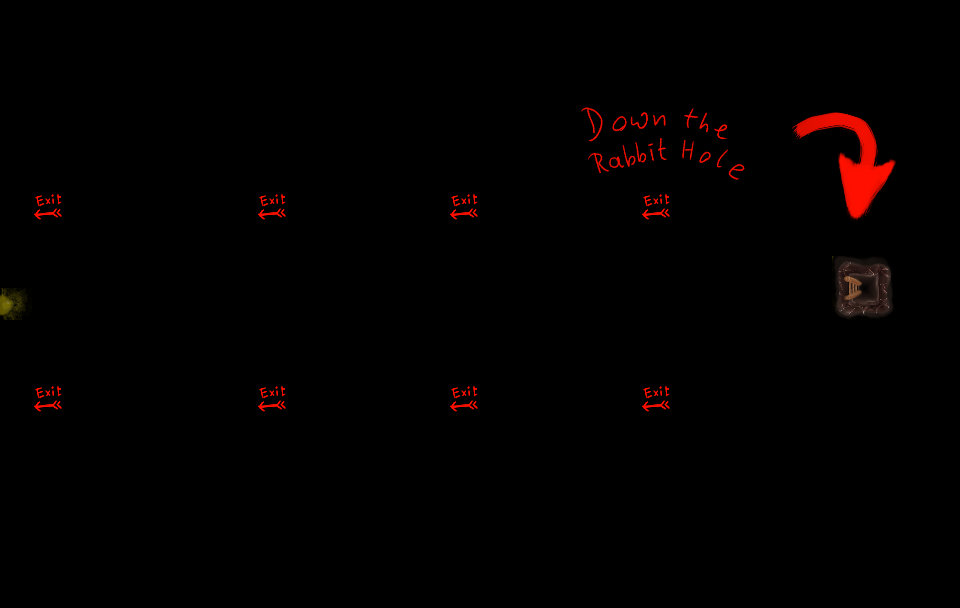 Down the
Rabbit Hole
Exit
Exit
Exit
Exit
Exit
Exit
Exit
Exit